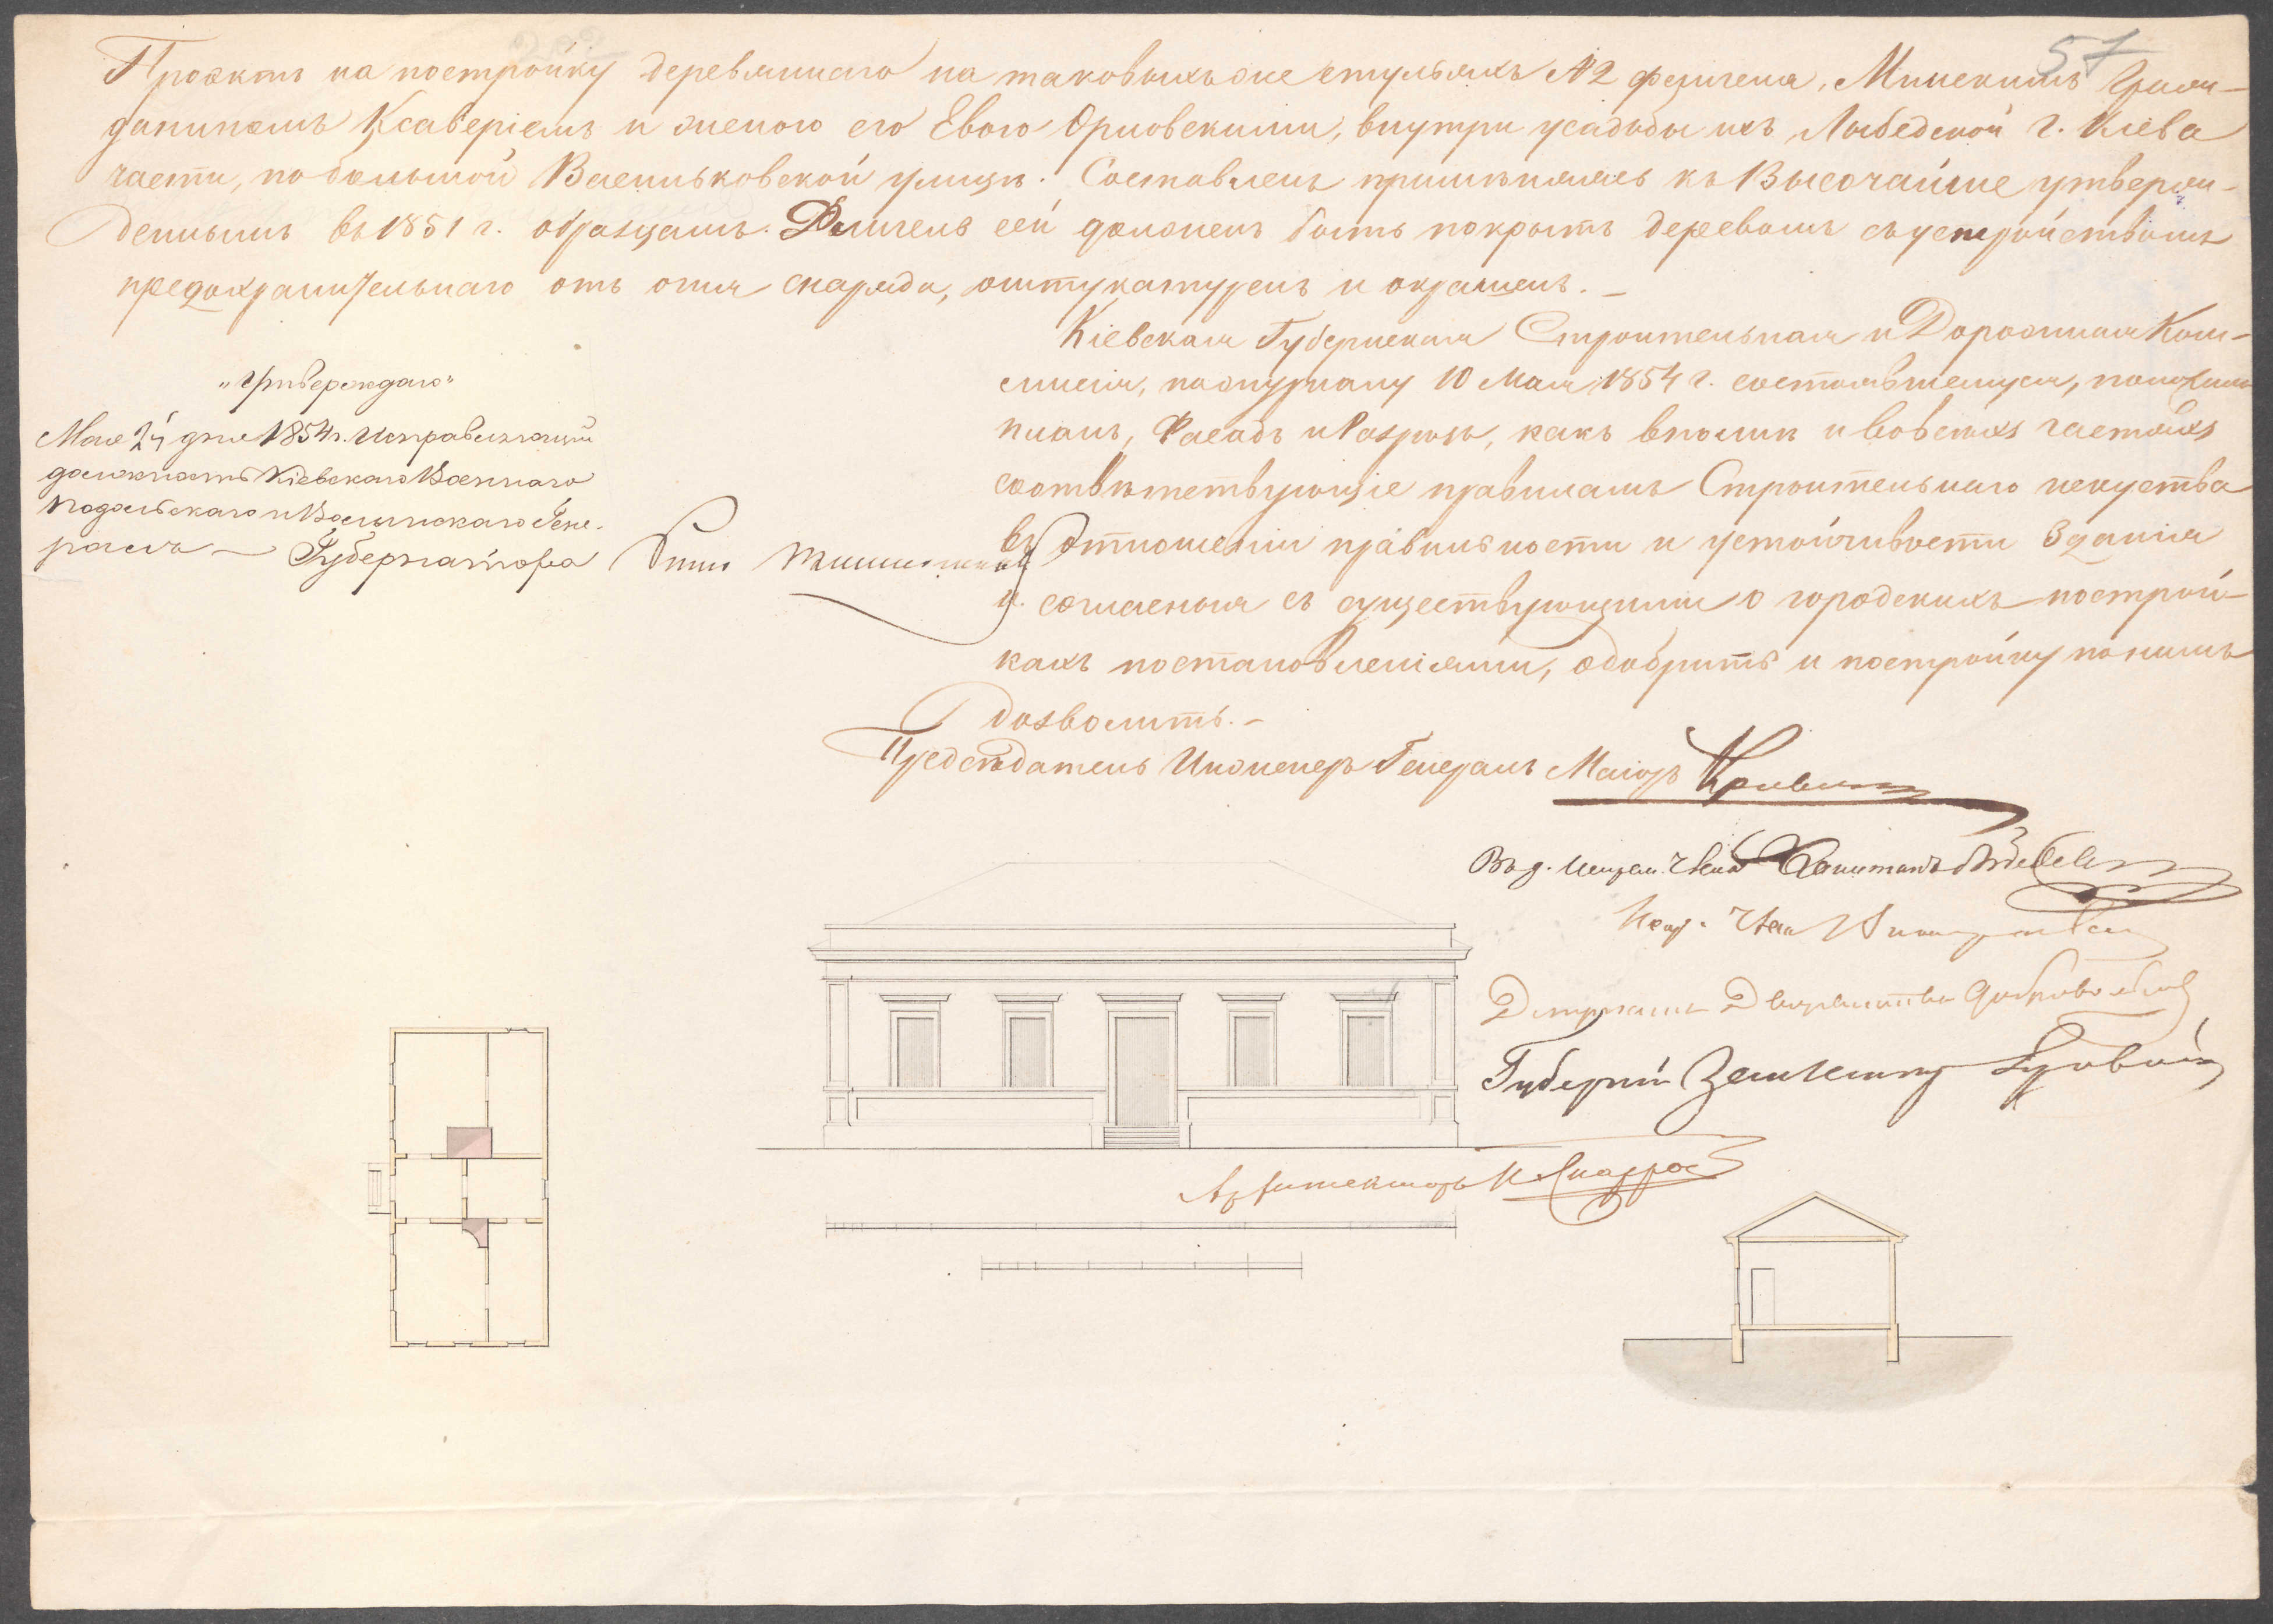 57
Проэктъ на постройку деревяннаго на таковыхъ же стульяхъ №2 флигеля, Минскимъ Граж-
даниномъ Ксаверіемъ и женою его Евою Орловскими, внутри усадьбы ихъ Лыбедской г. Кіева
части, по большой Васильковской улицѣ. Составленъ примѣняясь къ Высочайше утверж-
деннымъ въ 1851 г. образцамъ. Флигель сей долженъ быть покрытъ деревомъ съ устройствомъ
предохранительнаго отъ огня снаряда, оштукатуренъ и окрашенъ. —
Кіевская Губернская Строительная и Дорожная Ком-
мисія, по журналу 10 Мая 1854 г. состоявшемуся, положила
планъ, Фасадъ и Разрѣзъ, какъ вполнѣ и во всѣхъ частяхъ
соотвѣтствующіе правиламъ Строительнаго искуства
въ отношеніи правильности и устойчивости Зданія
и согласныя съ существующими о городскихъ построй-
кахъ постановленіями, одобрить и постройку по нимъ
дозволить. —
„Утверждаю"
Мая 24 дня 1854 г. Исправляющій
должность Кіевскаго Военнаго
Подольскаго и Волынскаго Гене-
ралъ — Губернатора
Предсѣдатель Инженеръ Генералъ Маіоръ
Члена Капитанъ
Депутатъ Дворянства
Губерн. Землемѣръ
Архитекторъ